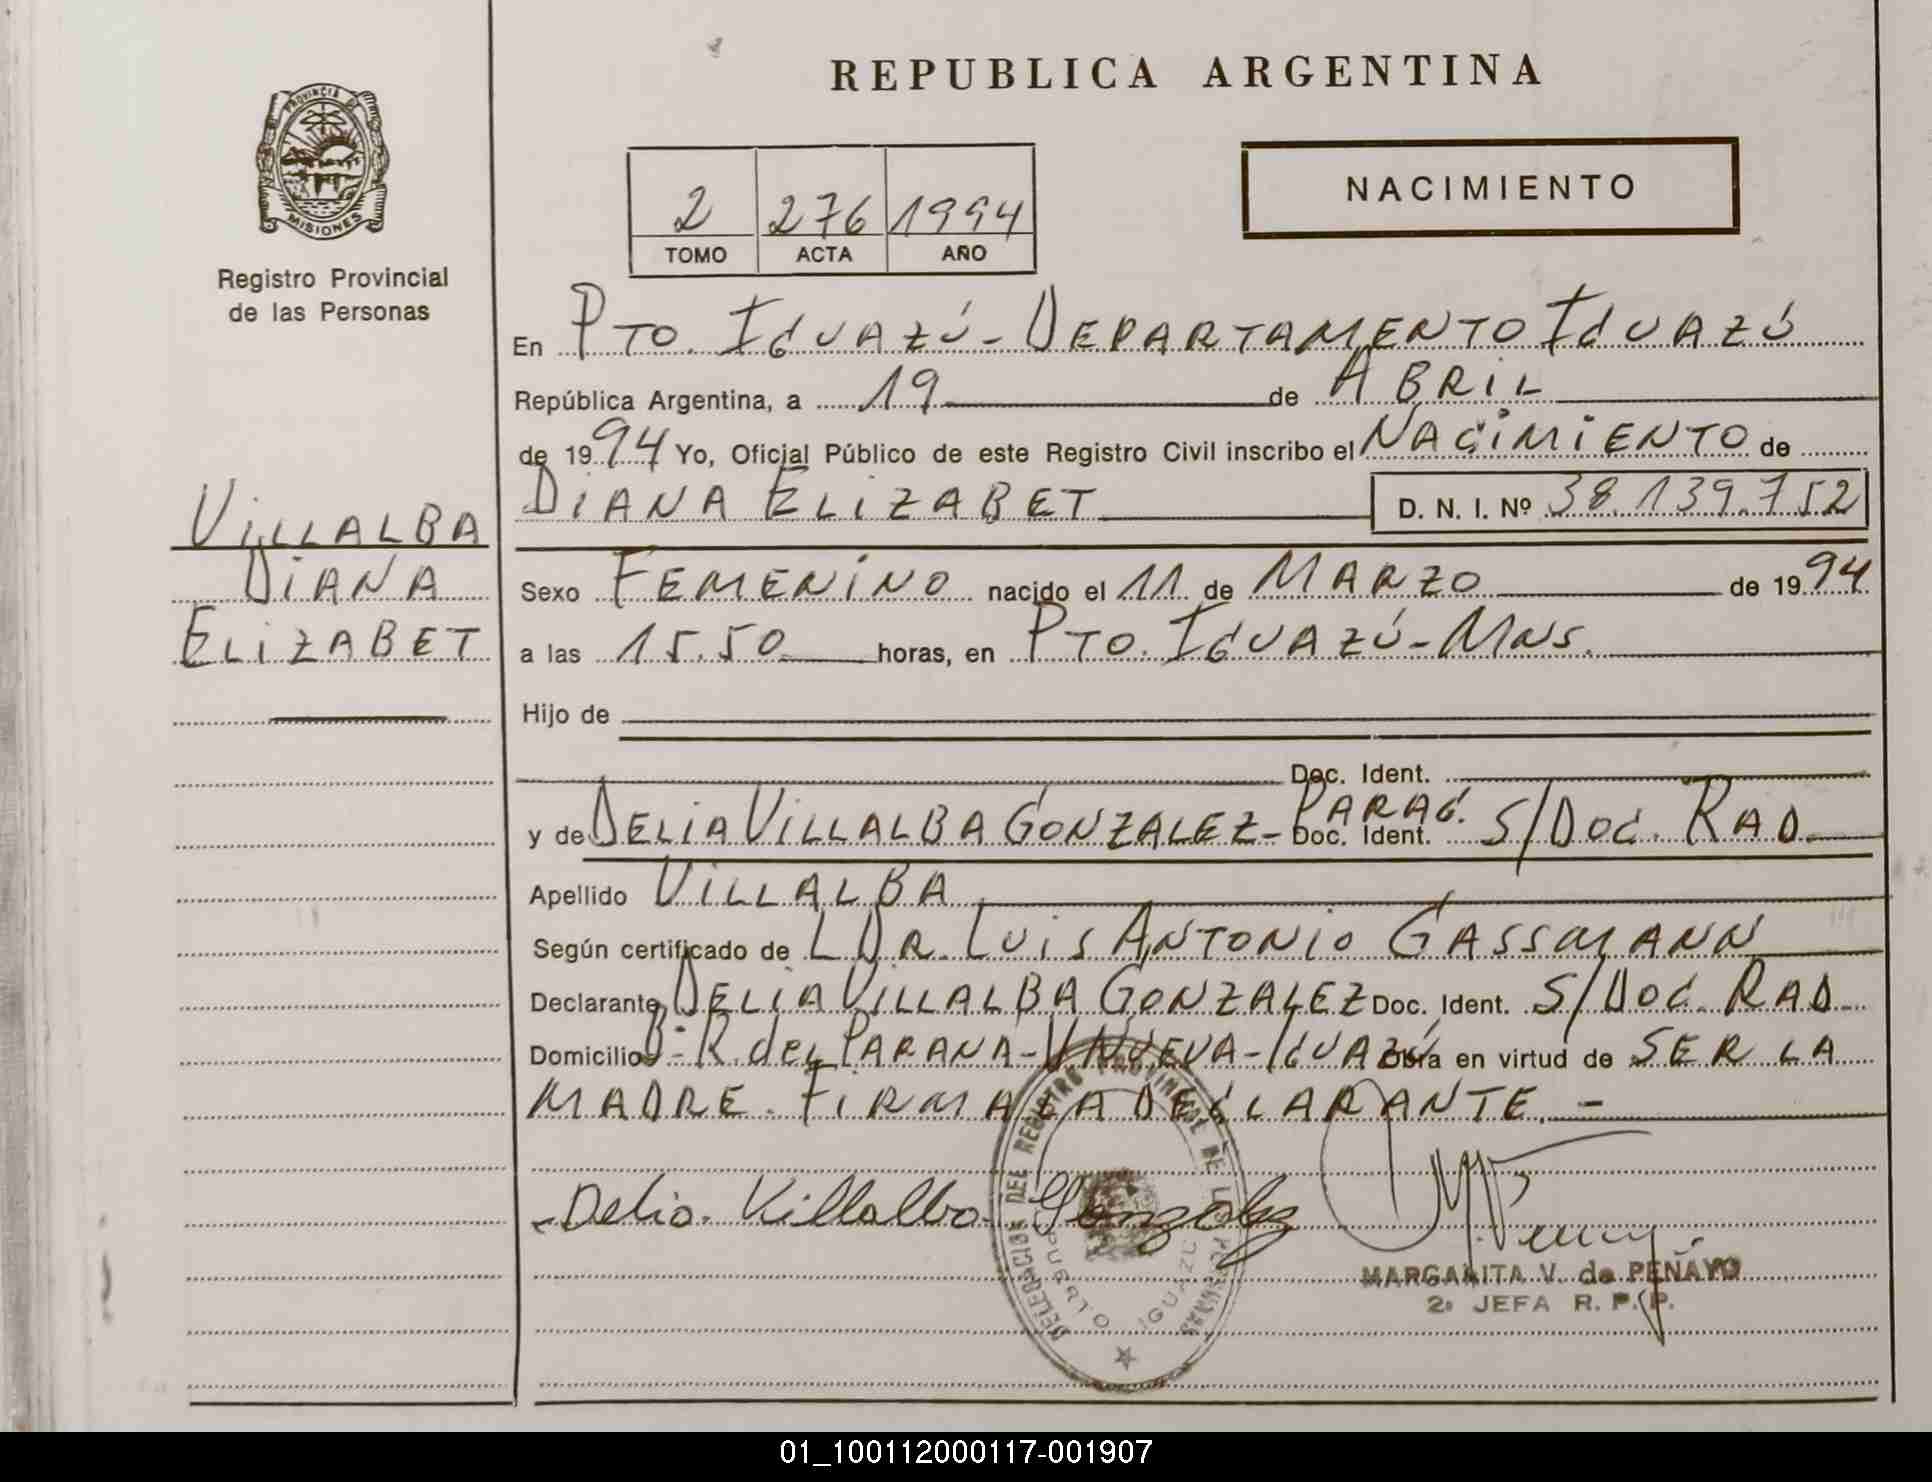 REPUBLICA ARGENTINA
PROVINCIA DE
MISIONES
Registro Provincial
de las Personas
2 276 1994
TOMO ACTA AÑO
NACIMIENTO
En PTO. IGUAZÚ - DEPARTAMENTO IGUAZÚ
República Argentina, a 19 de ABRIL
de 1994 Yo, Oficial Público de este Registro Civil inscribo el NACIMIENTO de
DIANA ELIZABET D. N. I. Nº 38.139.752
VILLALBA
DIANA
ELIZABET
Sexo FEMENINO nacido el 11 de MARZO de 1994
a las 15.50 horas, en PTO. IGUAZÚ - MNS.
Hijo de
Doc. Ident.
y de DELIA VILLALBA GONZALEZ - PARAG. Doc. Ident. S/DOC. RAD.
Apellido VILLALBA
Según certificado de L DR. LUIS ANTONIO GASSMANN
Declarante DELIA VILLALBA GONZALEZ Doc. Ident. S/DOC. RAD.
Domicilio Bº - R. del PARANA - V. NUEVA - IGUAZÚ Obra en virtud de SER LA
MADRE. FIRMA LA DECLARANTE. -
Delia Villalba Gonzalez
DELEGACION DEL REGISTRO PROVINCIAL DE LAS PERSONAS
PUERTO IGUAZU
MARGARITA V. de PEÑAYO
2ª JEFA R. P. P.
01_100112000117-001907